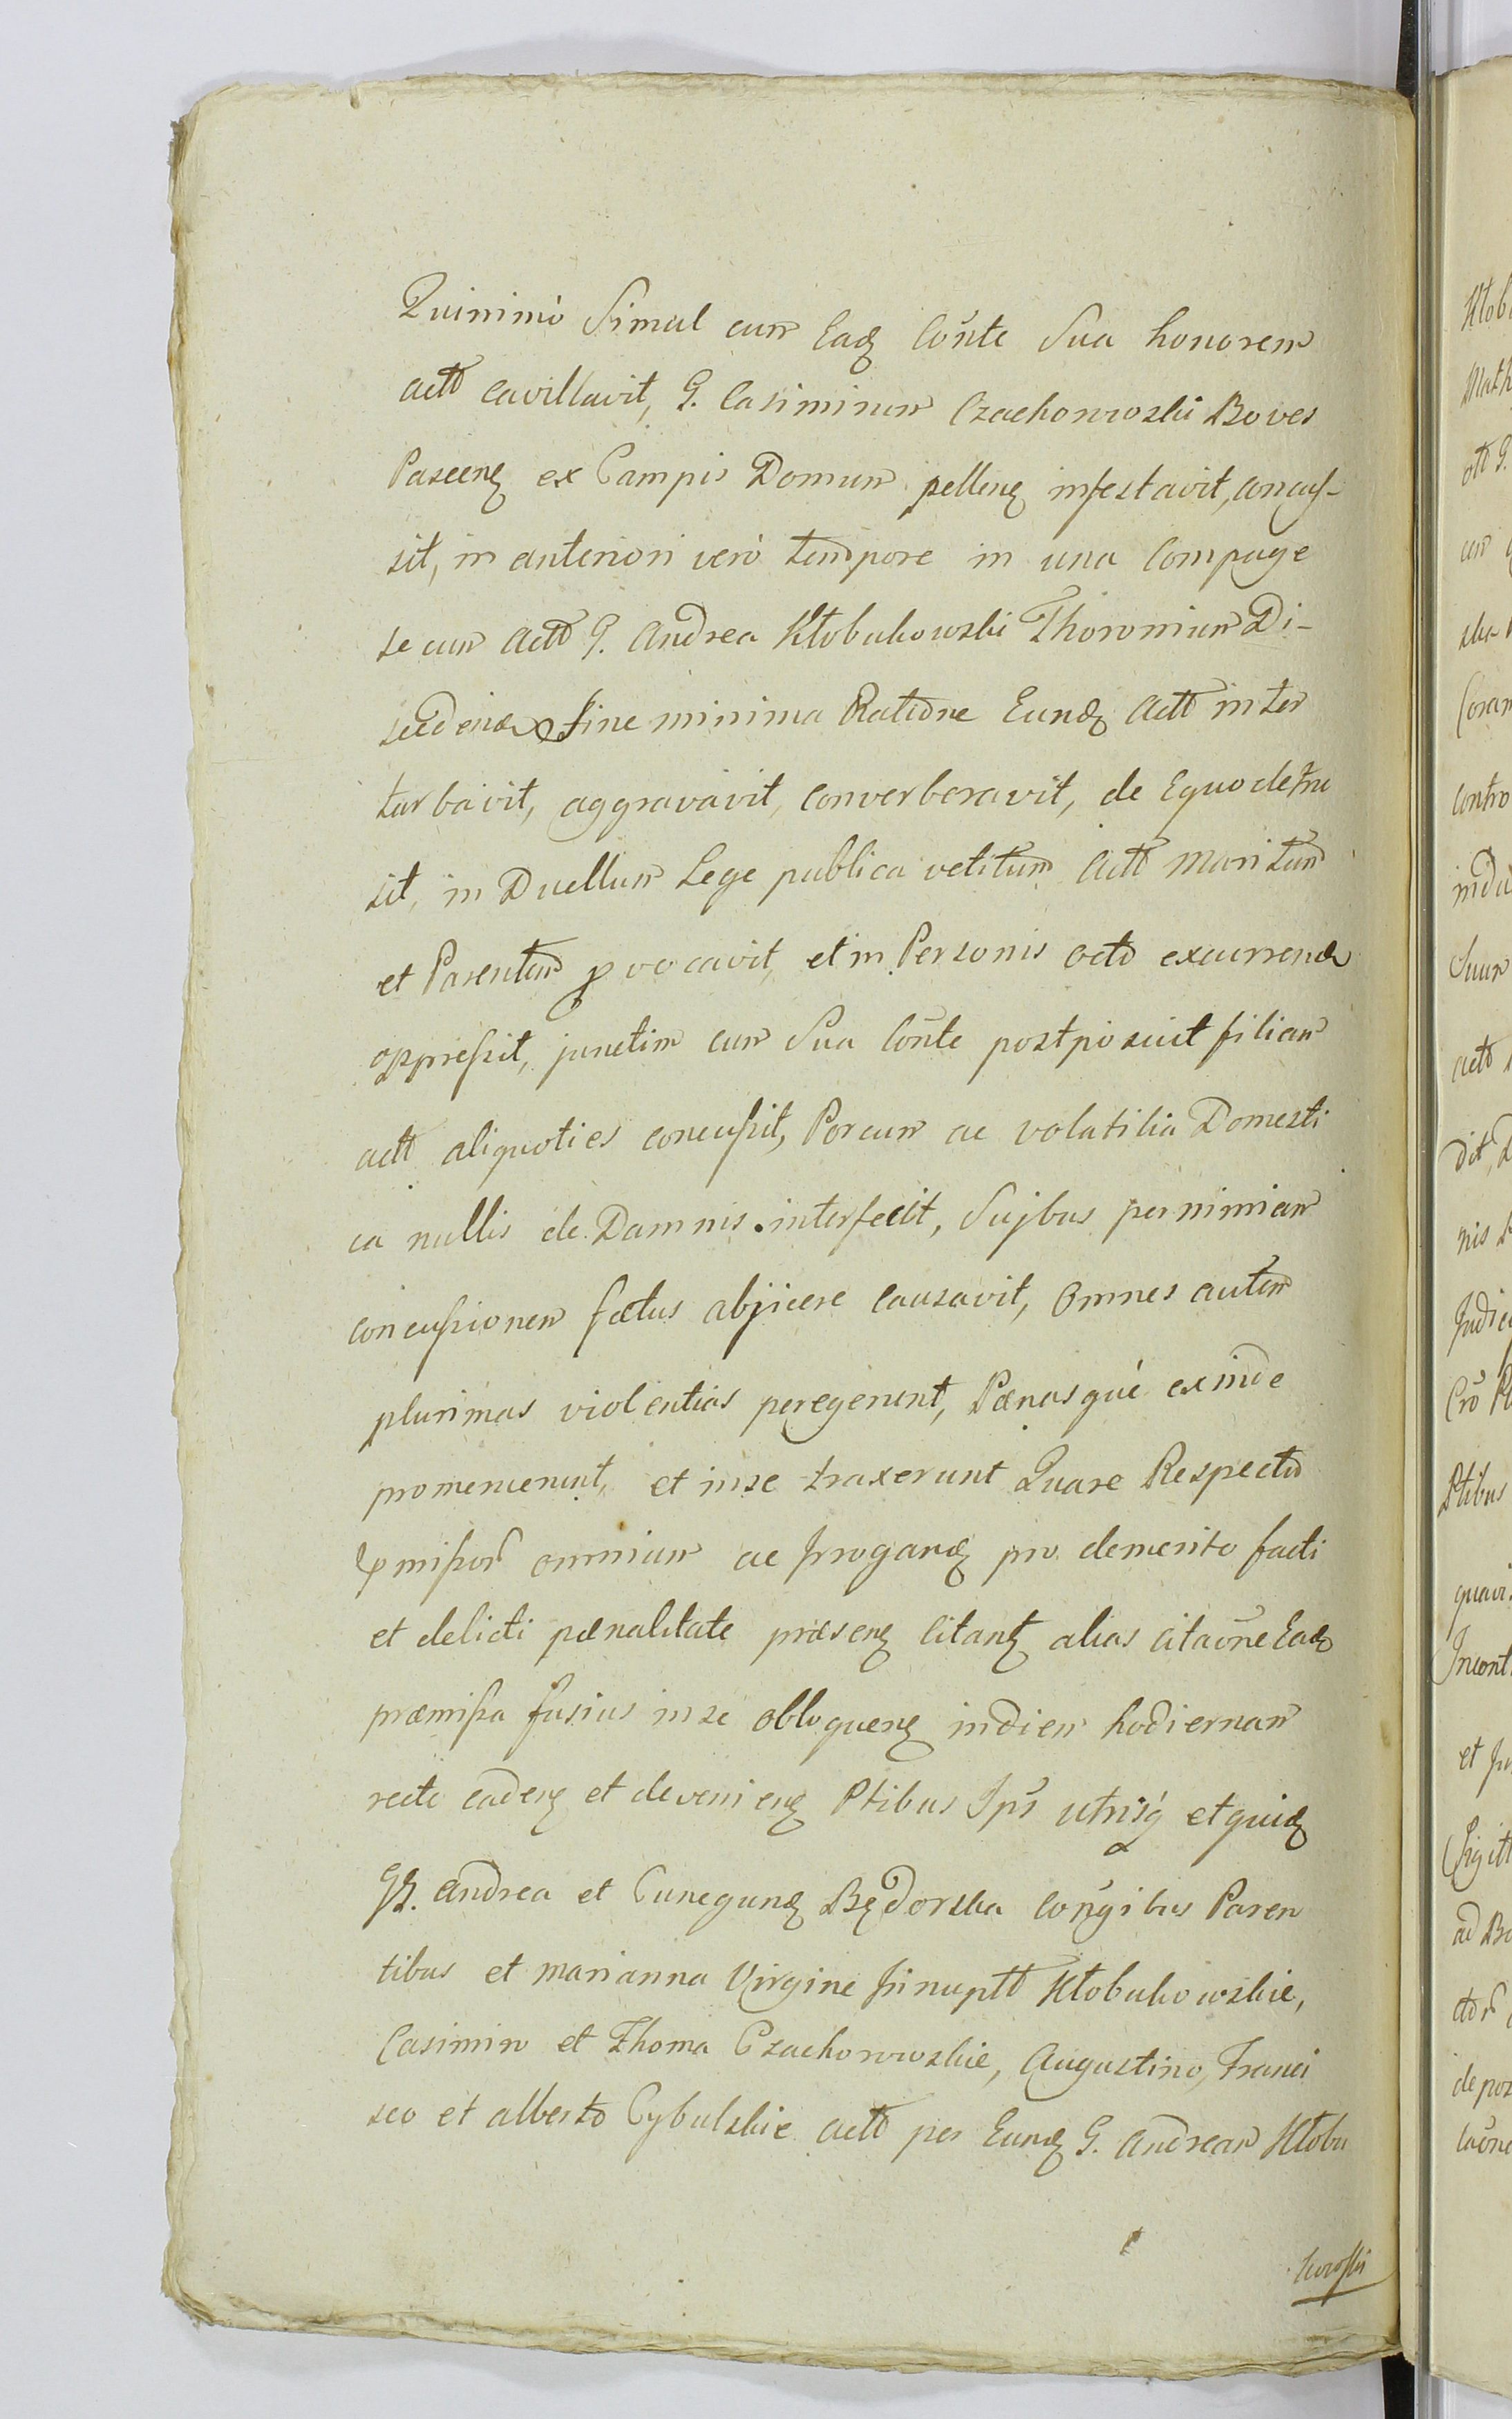 Quinimò Simul cum Eadꝫ Cõnte Sua honorem
actt cavillavit, G. Casimirum Czachorowski Boves
Pascenꝫ ex Campis Domum pellenꝫ infestavit, concus-
sit, in anteriori verò tempore in una Compage
se cum Actt G. Andrea Kłobukowski Thoronium Di-
scedend sine minima Ratione Eundꝫ Actt inter
turbavit, aggravavit, converberavit, de Equo detru
sit, in Duellum Lege publica vetitum Actt Maritum
et Parentem provocavit, et in Personis actt excurrend
oppressit, junctim cum Sua Cõnte postposuit filiam
actt aliquoties concussit, Porcum ac volatilia Domesti
ca nullis de Damnis interfecit, Sujbus per nimiam
concussionem fœtus abjicere causavit, Omnes autem
plurimas violentias peregerunt, Pœnasquè exinde
promeruerunt, et in se traxerunt Quare Respectu
Præmissor omnium ac Irrogandꝫ pro demerito facti
et delicti pœnalitate præsenꝫ Citantꝫ alias citaõne Eadꝫ
præmissa fusius in se obloquenꝫ in diem hodiernam
recte cadenꝫ et devenienꝫ Ptibus Ip̃s utrisq́ et quidꝫ
GG. Andrea et Cunegundꝫ Będorska Conĩgibus Paren
tibus et Marianna Virgine Innuptt Kłobukowskie,
Casimiro et Thoma Czachorowskie, Augustino, Franci
sco et Alberto Cybulskie actt per Eundꝫ G. Andream Kłobu
kowski